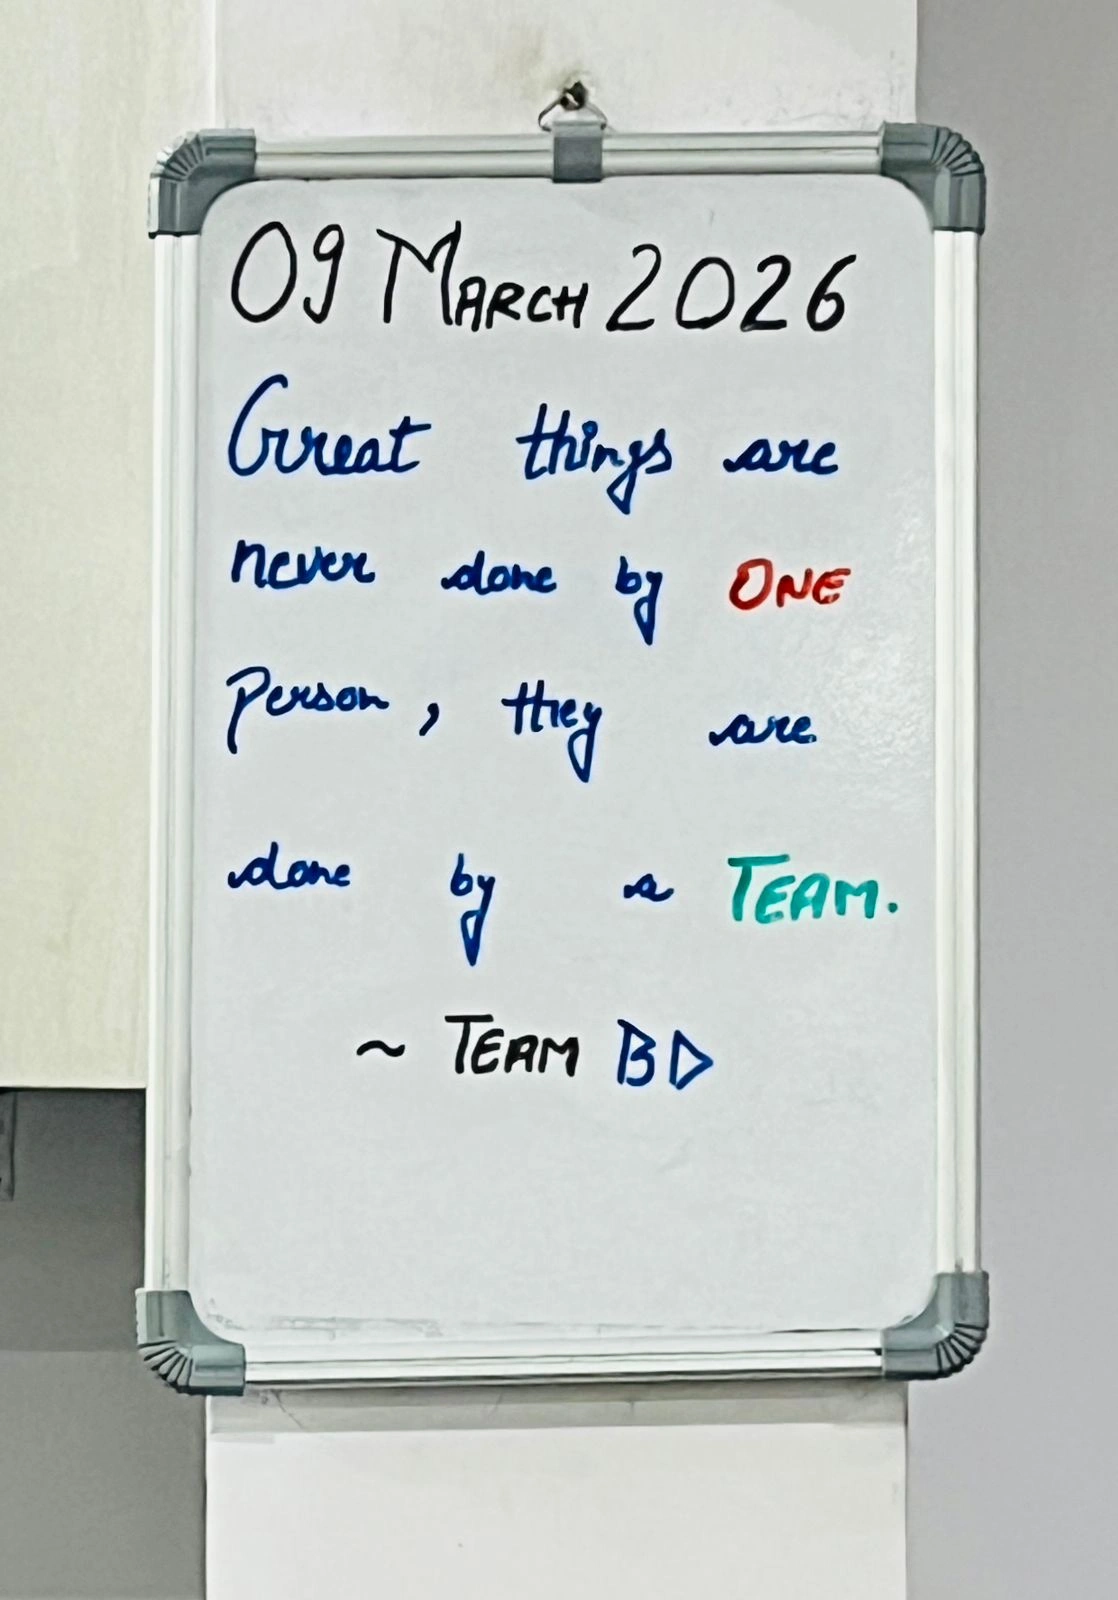 09 MARCH 2026
Great things are
never done by ONE
person, they are
done by a TEAM.
~ TEAM BD